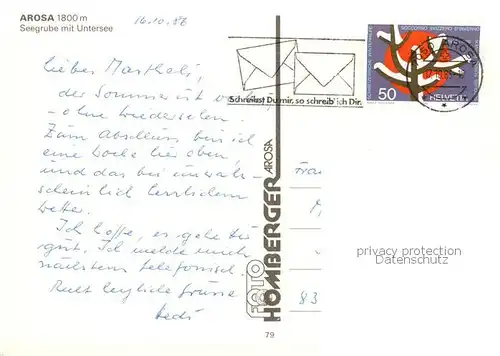 AROSA 1800 m
Seegrube mit Untersee
14.10.86
Lieber Marthali,
der Sommer ist vorbei
- ohne Wiedersehen.
Zum Abschluss bin ich
eine Woche hier oben,
und das bei unwahr-
scheinlich herrlichem
Wetter.
Ich hoffe, es gehe dir
gut. Ich melde mich
nächstens telefonisch.
Recht herzliche Grüsse
Hedi
Schreibst Du mir, so schreib' ich Dir.
AROSA
HELVETIA
50
FOTO HOMBERGER AROSA
79
Frau
83
privacy protection
Datenschutz